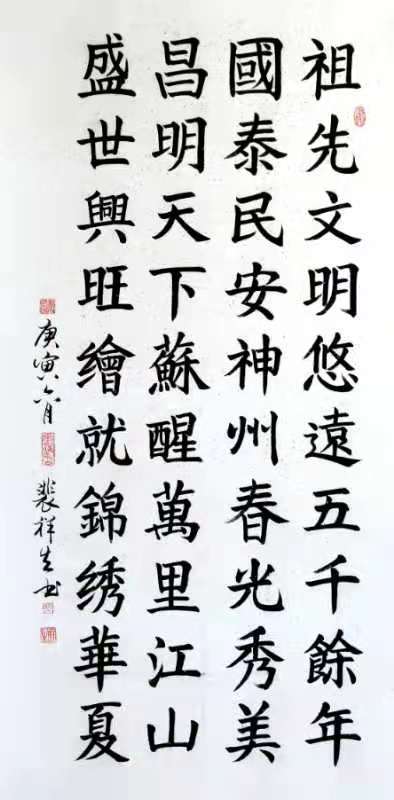 祖先文明悠遠五千餘年
國泰民安神州春光秀美
昌明天下蘇醒萬里江山
盛世興旺繪就錦绣華夏
庚寅六月
裴祥生书